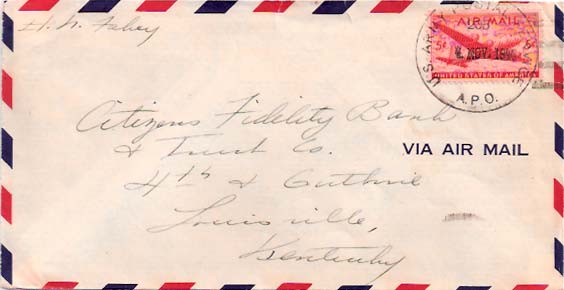 AIR MAIL
5¢
UNITED STATES OF AMERICA
U.S. ARMY POSTAL SERVICE
A.P.O.
Citizens Fidelity Bank
& Trust Co.
VIA AIR MAIL
4th & Guthrie
Louisville,
Kentucky